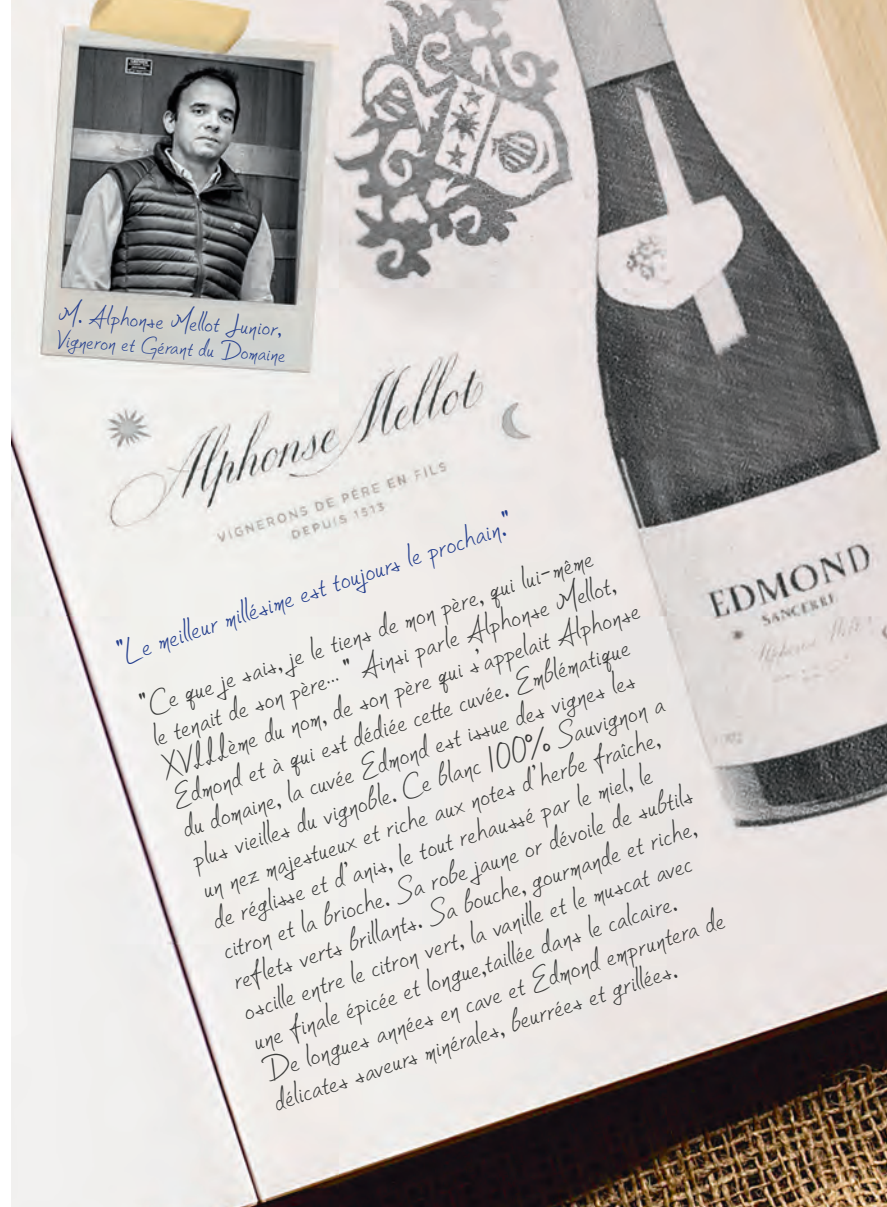 M. Alphonse Mellot Junior,
Vigneron et Gérant du Domaine
Alphonse Mellot
VIGNERONS DE PÈRE EN FILS
DEPUIS 1513
"Le meilleur millésime est toujours le prochain."
"Ce que je sais, je le tiens de mon père, qui lui-même
le tenait de son père..." Ainsi parle Alphonse Mellot,
XVIIIème du nom, de son père qui s'appelait Alphonse
Edmond et à qui est dédiée cette cuvée. Emblématique
du domaine, la cuvée Edmond est issue des vignes les
plus vieilles du vignoble. Ce blanc 100% Sauvignon a
un nez majestueux et riche aux notes d'herbe fraîche,
de réglisse et d'anis, le tout rehaussé par le miel, le
citron et la brioche. Sa robe jaune or dévoile de subtils
reflets verts brillants. Sa bouche, gourmande et riche,
oscille entre le citron vert, la vanille et le muscat avec
une finale épicée et longue,taillée dans le calcaire.
De longues années en cave et Edmond empruntera de
délicates saveurs minérales, beurrées et grillées.
EDMOND
SANCERRE
Alphonse Mellot